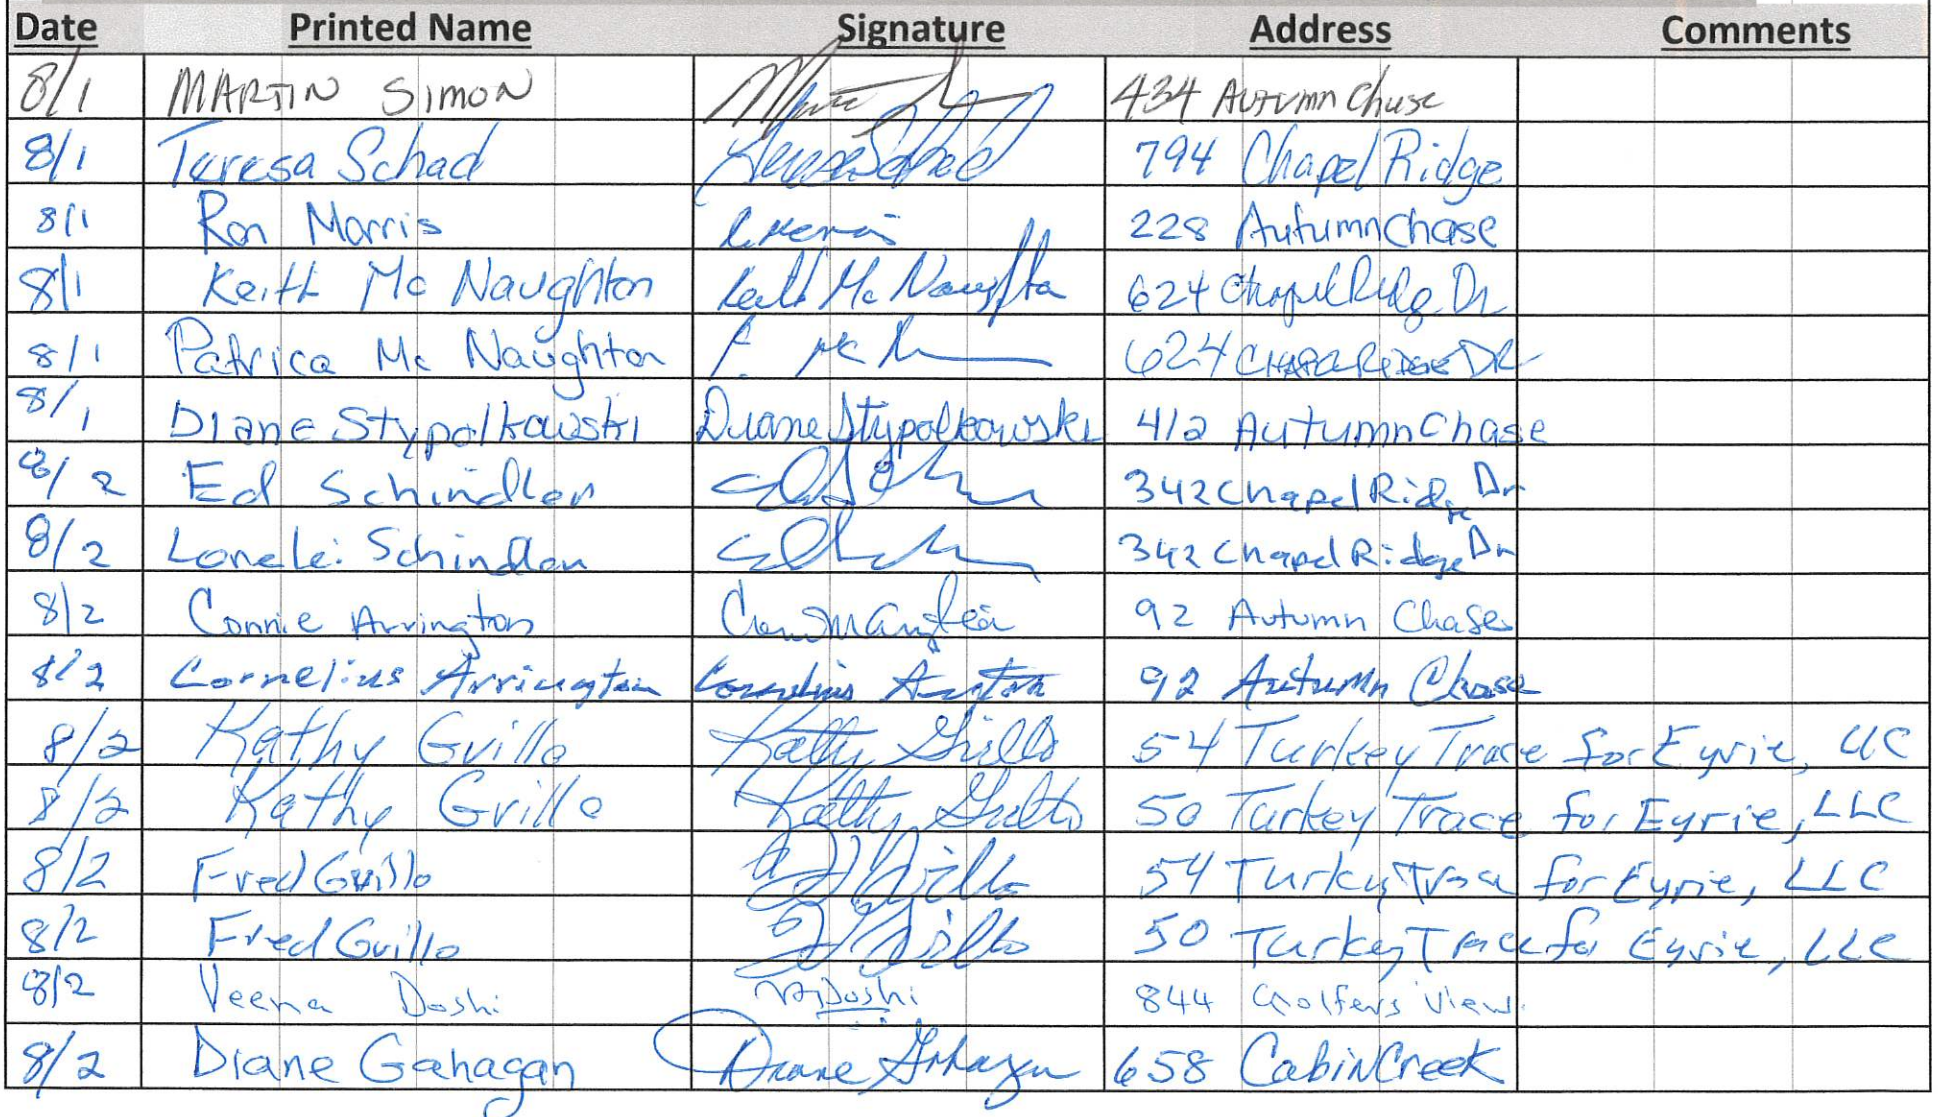 Date Printed Name Signature Address Comments
8/1 MARTIN SIMON 434 Autumn Chase
8/1 Teresa Schad Teresa Schad 794 Chapel Ridge
8/1 Ron Morris 228 Autumn Chase
8/1 Keith Mc Naughton Keith Mc Naughton 624 Chapel Ridge Dr
8/1 Patrica Mc Naughton P. Mc N 624 CHAPEL RIDGE DR
8/1 Diane Stypolkowski Diane Stypolkowski 412 Autumn Chase
8/2 Ed Schindler 342 Chapel Ridge Dr
8/2 Lorelei Schindler 342 Chapel Ridge Dr
8/2 Connie Arrington 92 Autumn Chase
8/2 Cornelius Arrington Cornelius Arrington 92 Autumn Chase
8/2 Kathy Grillo Kathy Grillo 54 Turkey Trace for Eyrie, LLC
8/2 Kathy Grillo Kathy Grillo 50 Turkey Trace for Eyrie, LLC
8/2 Fred Grillo F Grillo 54 Turkey Trace for Eyrie, LLC
8/2 Fred Grillo F Grillo 50 Turkey Trace for Eyrie, LLC
8/2 Veena Doshi V.Doshi 844 Golfers View.
8/2 Diane Gahagan Diane Gahagan 658 Cabin Creek